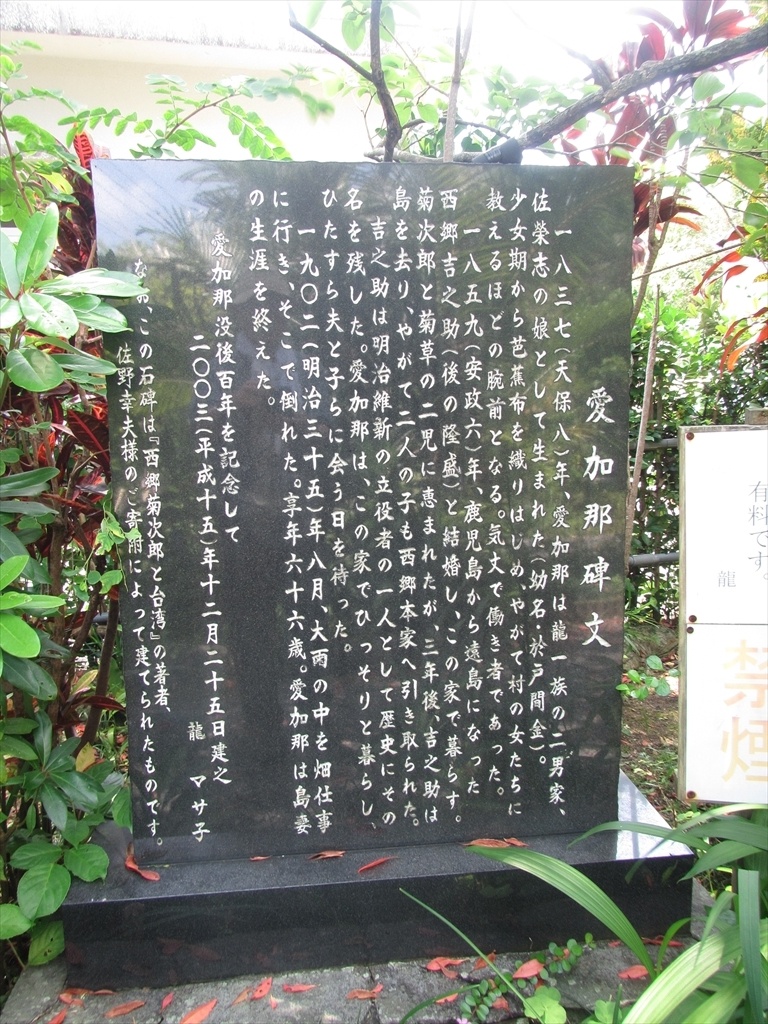 愛加那碑文
一八三七(天保八)年、愛加那は龍一族の二男家、
佐榮志の娘として生まれた(幼名・於戸間金)。
少女期から芭蕉布を織りはじめ、やがて村の女たちに
教えるほどの腕前となる。気丈で働き者であった。
一八五九(安政六)年、鹿児島から遠島になった
西郷吉之助(後の隆盛)と結婚し、この家で暮らす。
菊次郎と菊草の二児に恵まれたが、三年後、吉之助は
島を去り、やがて二人の子も西郷本家へ引き取られた。
吉之助は明治維新の立役者の一人として歴史にその
名を残した。愛加那は、この家でひっそりと暮らし、
ひたすら夫と子らに会う日を待った。
一九〇二(明治三十五)年八月、大雨の中を畑仕事
に行き、そこで倒れた。享年六十六歳。愛加那は島妻
の生涯を終えた。
愛加那没後百年を記念して
二〇〇三(平成十五)年十二月二十五日建之
龍 マサ子
なお、この石碑は『西郷菊次郎と台湾』の著者、
佐野幸夫様のご寄附によって建てられたものです。
有料です。
龍
禁煙